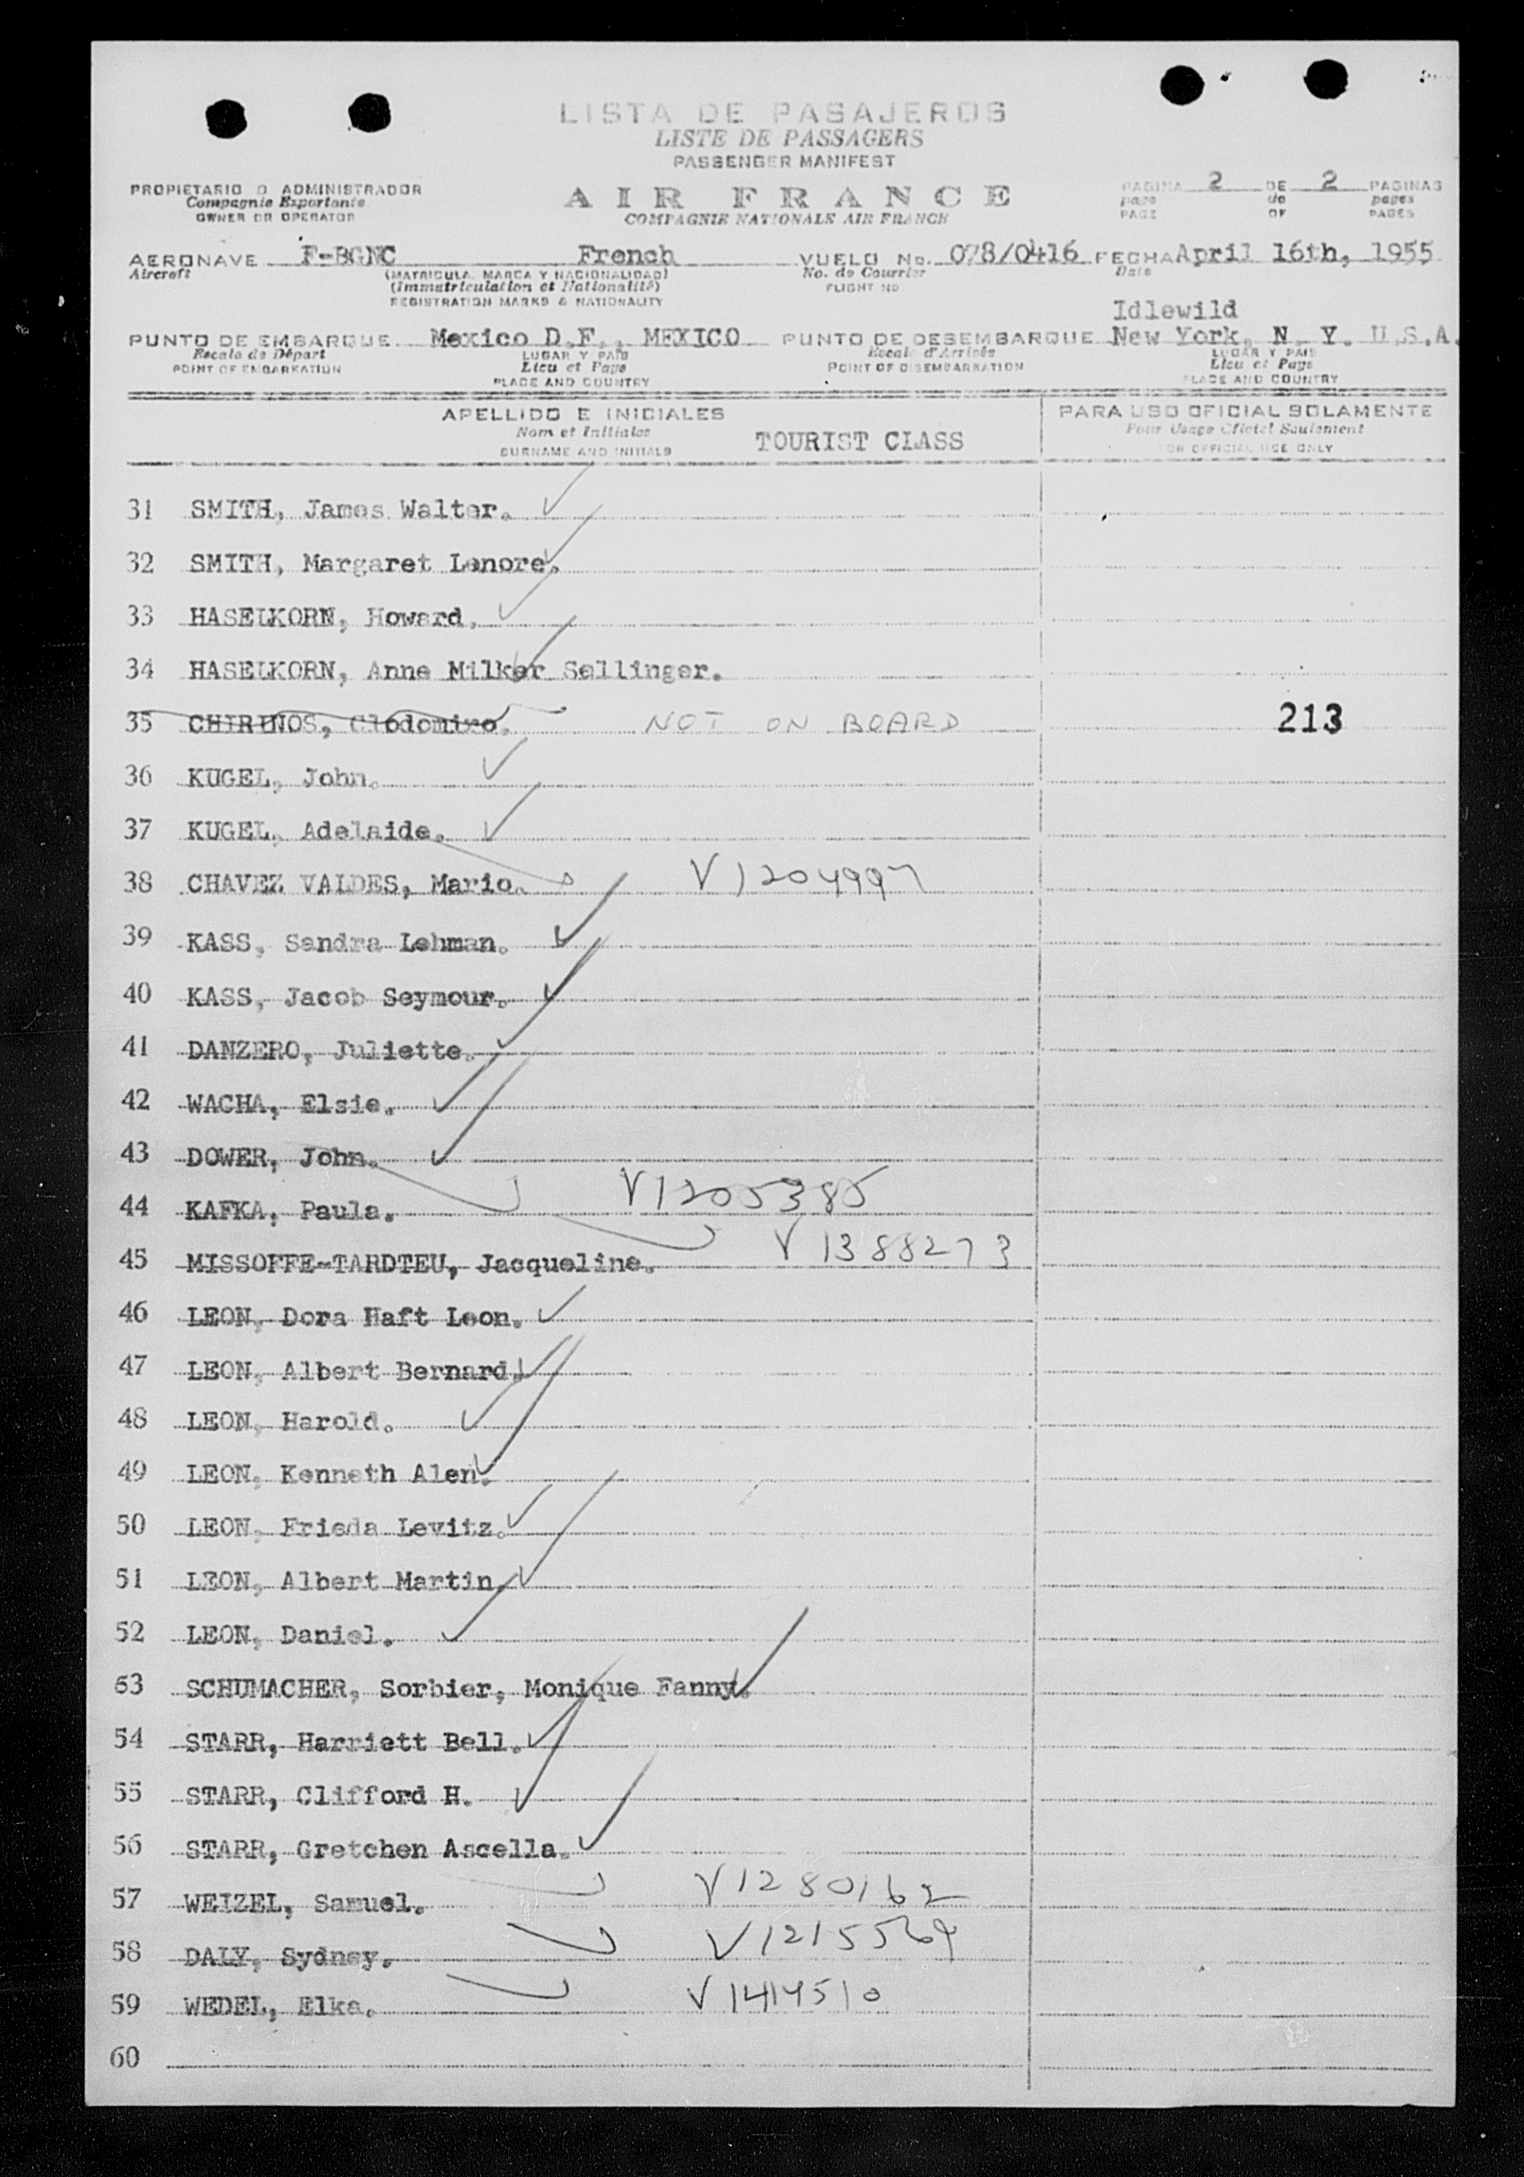 LISTA DE PASAJEROS
LISTE DE PASSAGERS
PASSENGER MANIFEST
PROPIETARIO O ADMINISTRADOR
Compagnie Exportante
OWNER OR OPERATOR
AIR FRANCE
COMPAGNIE NATIONALE AIR FRANCE
PAGINA 2 DE 2 PAGINAS
page de pages
PAGE OF PAGES
AERONAVE F-BGNC French VUELO No. 078/0416 FECHA April 16th, 1955
Aircraft (MATRICULA, MARCA Y NACIONALIDAD) No. de Courrier Date
(Immatriculation et Nationalité) FLIGHT NO
REGISTRATION MARKS & NATIONALITY
Idlewild
PUNTO DE EMBARQUE Mexico D.F., MEXICO PUNTO DE DESEMBARQUE New York, N. Y. U.S.A.
Escale de Départ LUGAR Y PAIS Escale d'Arrivée LUGAR Y PAIS
POINT OF EMBARKATION Lieu et Pays POINT OF DISEMBARKATION Lieu et Pays
PLACE AND COUNTRY PLACE AND COUNTRY
APELLIDO E INICIALES PARA USO OFICIAL SOLAMENTE
Nom et Initiales TOURIST CLASS Pour Usage Oficiel Seulement
SURNAME AND INITIALS FOR OFFICIAL USE ONLY
31 SMITH, James Walter.
32 SMITH, Margaret Lenore.
33 HASELKORN, Howard.
34 HASELKORN, Anne Milker Sellinger.
35 CHIRINOS, Clodomiro. NOT ON BOARD 213
36 KUGEL, John.
37 KUGEL, Adelaide.
38 CHAVEZ VALDES, Mario. V1204997
39 KASS, Sandra Lehman.
40 KASS, Jacob Seymour.
41 DANZERO, Juliette.
42 WACHA, Elsie.
43 DOWER, John.
44 KAFKA, Paula. V1205385
45 MISSOFFE-TARDTEU, Jacqueline. V1388273
46 LEON, Dora Haft Leon.
47 LEON, Albert Bernard.
48 LEON, Harold.
49 LEON, Kenneth Alen.
50 LEON, Frieda Levitz.
51 LEON, Albert Martin.
52 LEON, Daniel.
53 SCHUMACHER, Sorbier, Monique Fanny.
54 STARR, Harriett Bell.
55 STARR, Clifford H.
56 STARR, Gretchen Ascella.
57 WEIZEL, Samuel. V1280162
58 DALY, Sydney. V1215569
59 WEDEL, Elka. V1414510
60